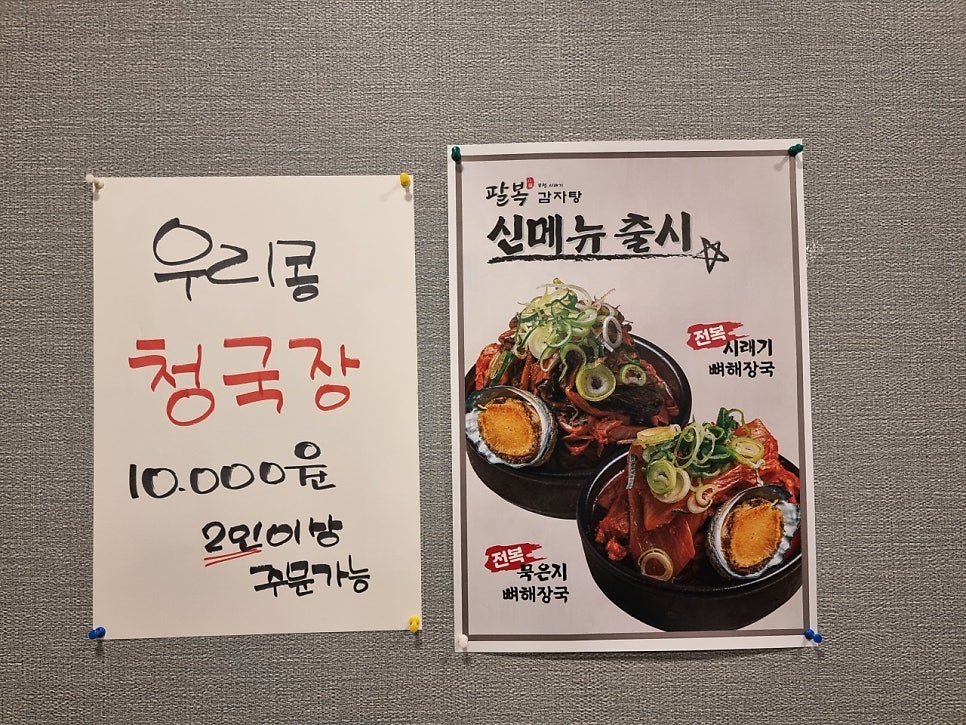 우리콩
청국장
10.000원
2인이상
주문가능
팔복 감자탕
신메뉴 출시
전복
시래기
뼈해장국
전복
묵은지
뼈해장국